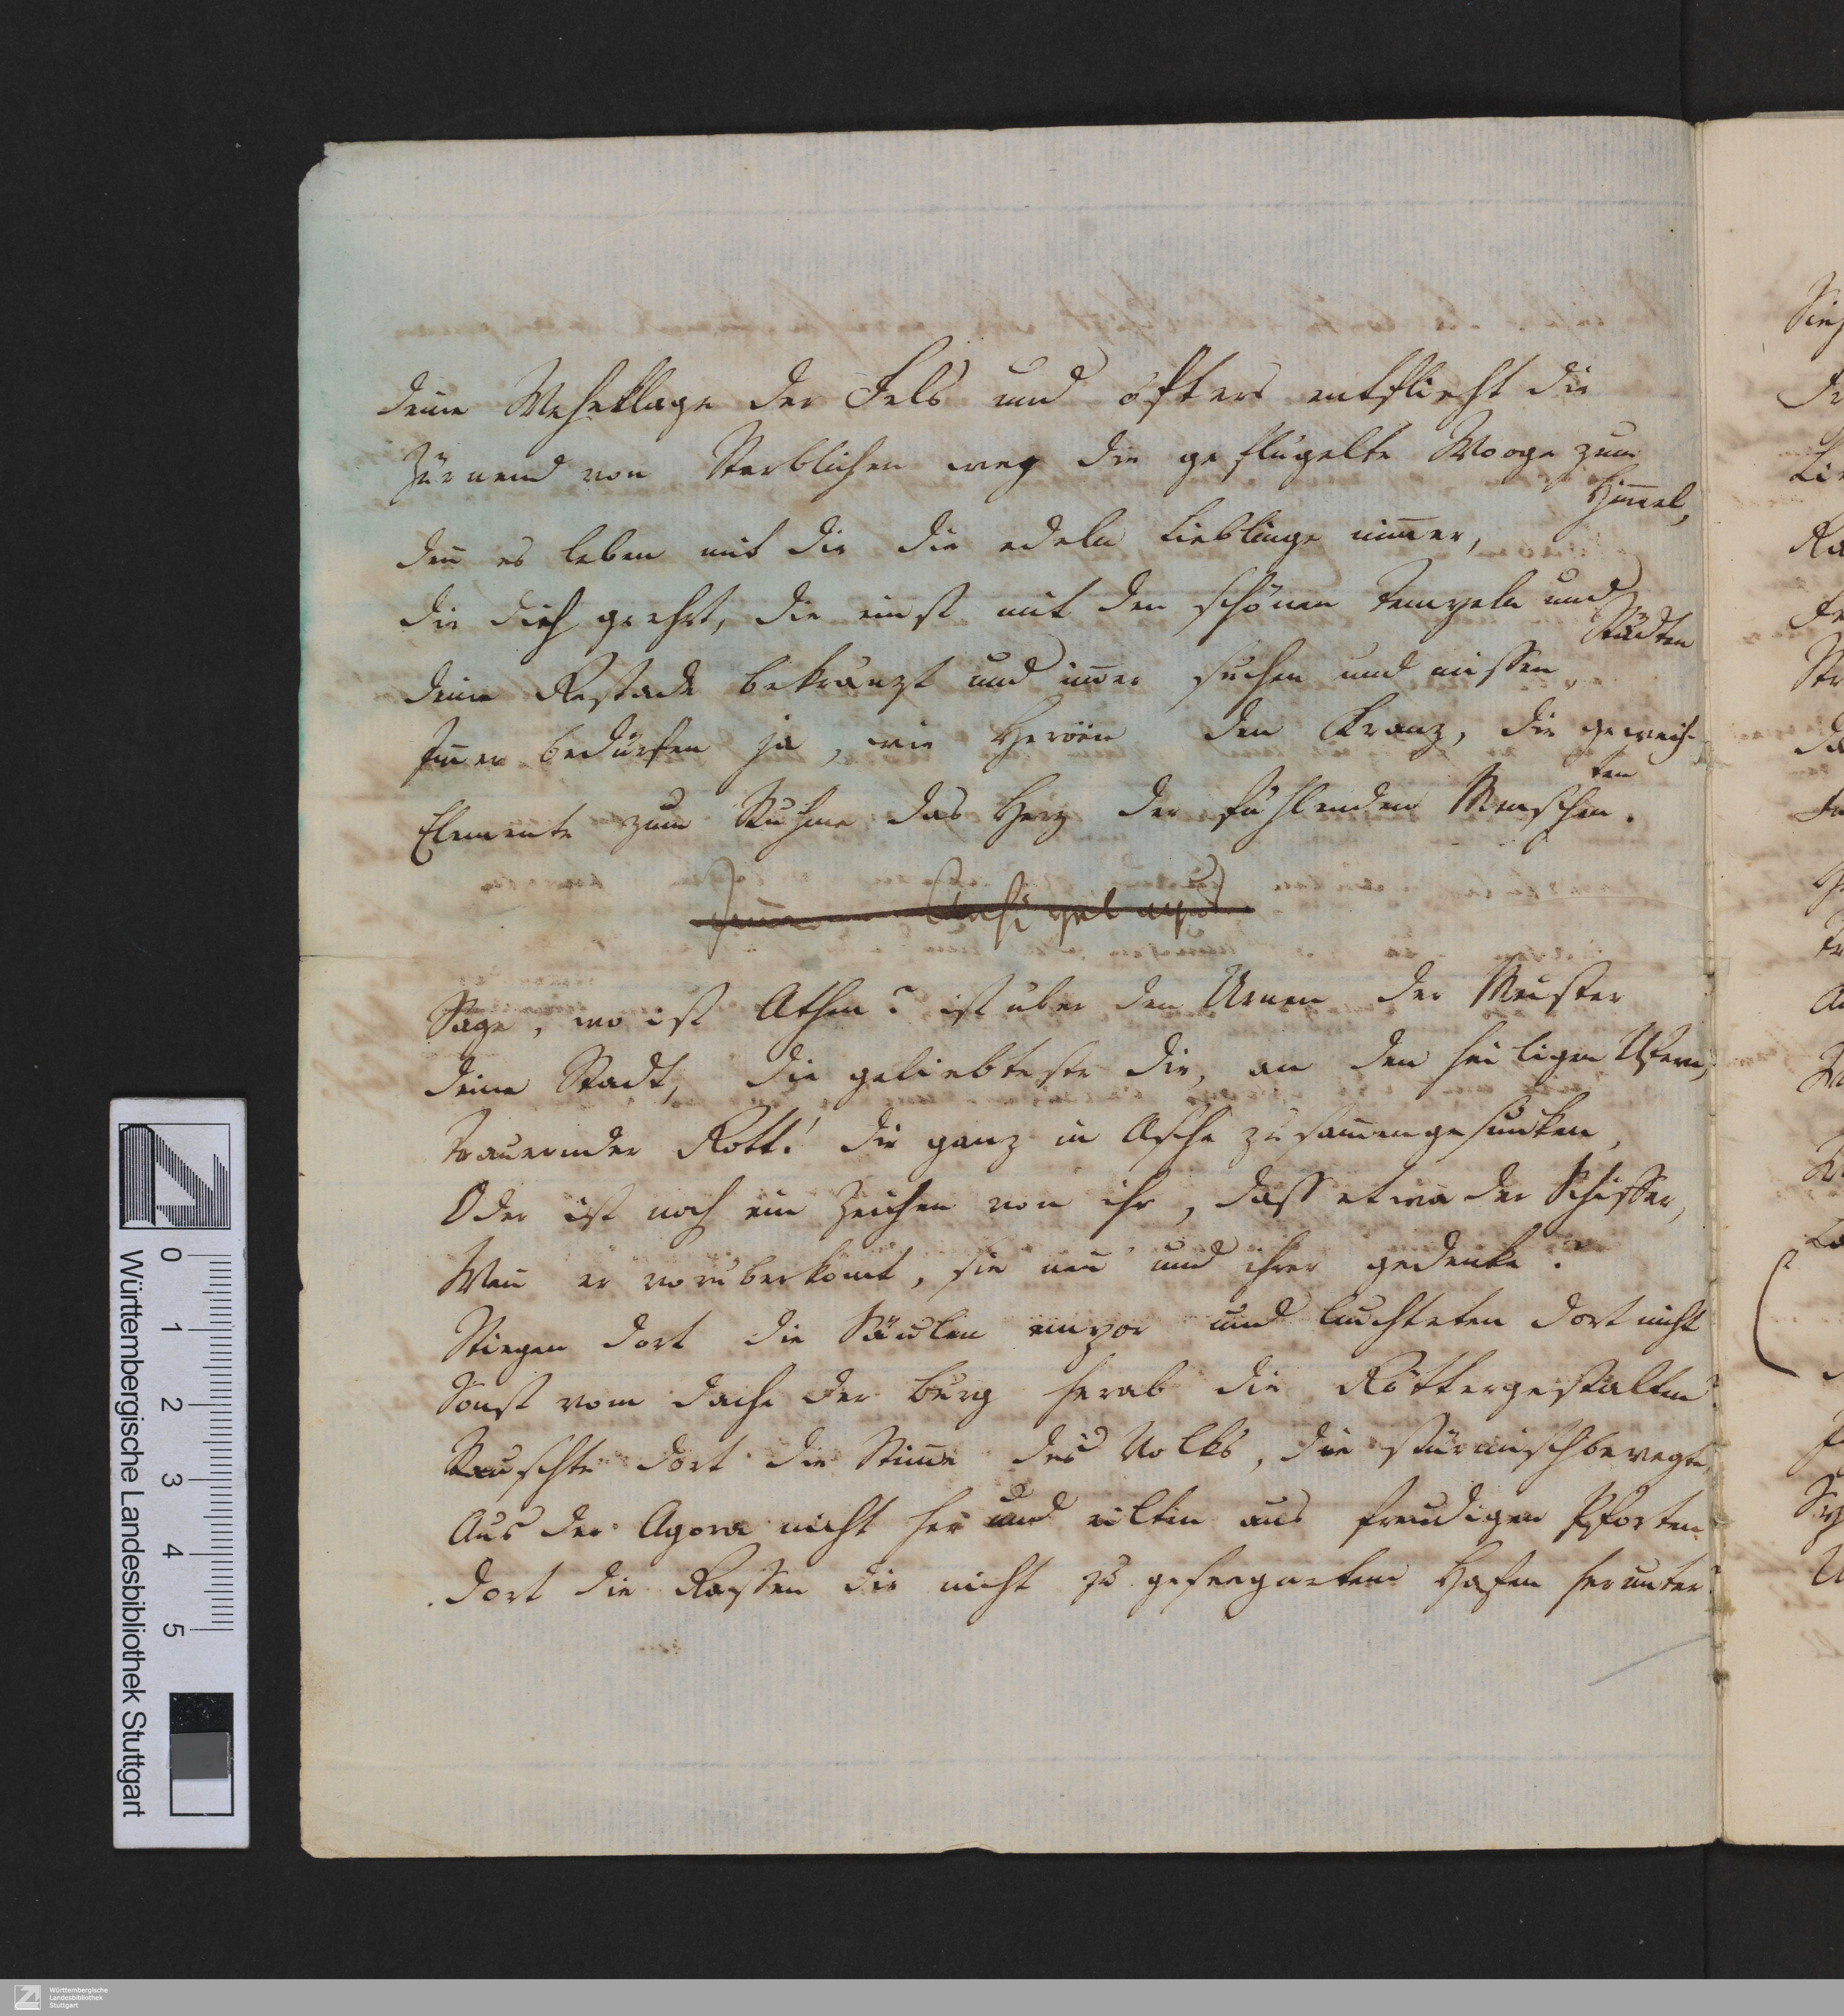 deine Wehеklage der Fels und öfters entflieht die
Zürnend von Sterblichen weg die geflügelte Wooge zum
Him̅el,
Den̅ es leben mit dir die edeln Lieblinge nim̅er,
die dich geehrt, die einst mit den schönen Tempeln und
Städten
deine Gestade bekränzt und im̅er suchen und missen,
Im̅er bedürfen ja, wie Heroën den Kranz, die geweih-
ten
Elemente zum Ruhme das Herz der fühlenden Menschen.
Sage, wo ist Athen? ist über den Urnen der Meister
deine Stadt, die geliebteste dir, an den heiligen Ufern,
Trauernder Gott! dir ganz in Asche zusam̅engesunken,
Oder ist noch ein Zeichen von ihr, dass etwa der Schiffer,
Wen̅ er vorüberkom̅t, sie nen̅' und ihrer gedenke?
Stiegen dort die Säulen empor und leuchteten dort nicht
Sonst vom Dache der Burg herab die Göttergestalten?
Rauschte dort die Stim̅e des Volks, die stürmischbewegte,
Aus der Agora nicht her und eilten aus freudigen Pforten
dort die Gassen dir nicht zu gesegnetem Hafen herunter?
Württembergische Landesbibliothek Stuttgart
0 1 2 3 4 5
Württembergische
Landesbibliothek
Stuttgart